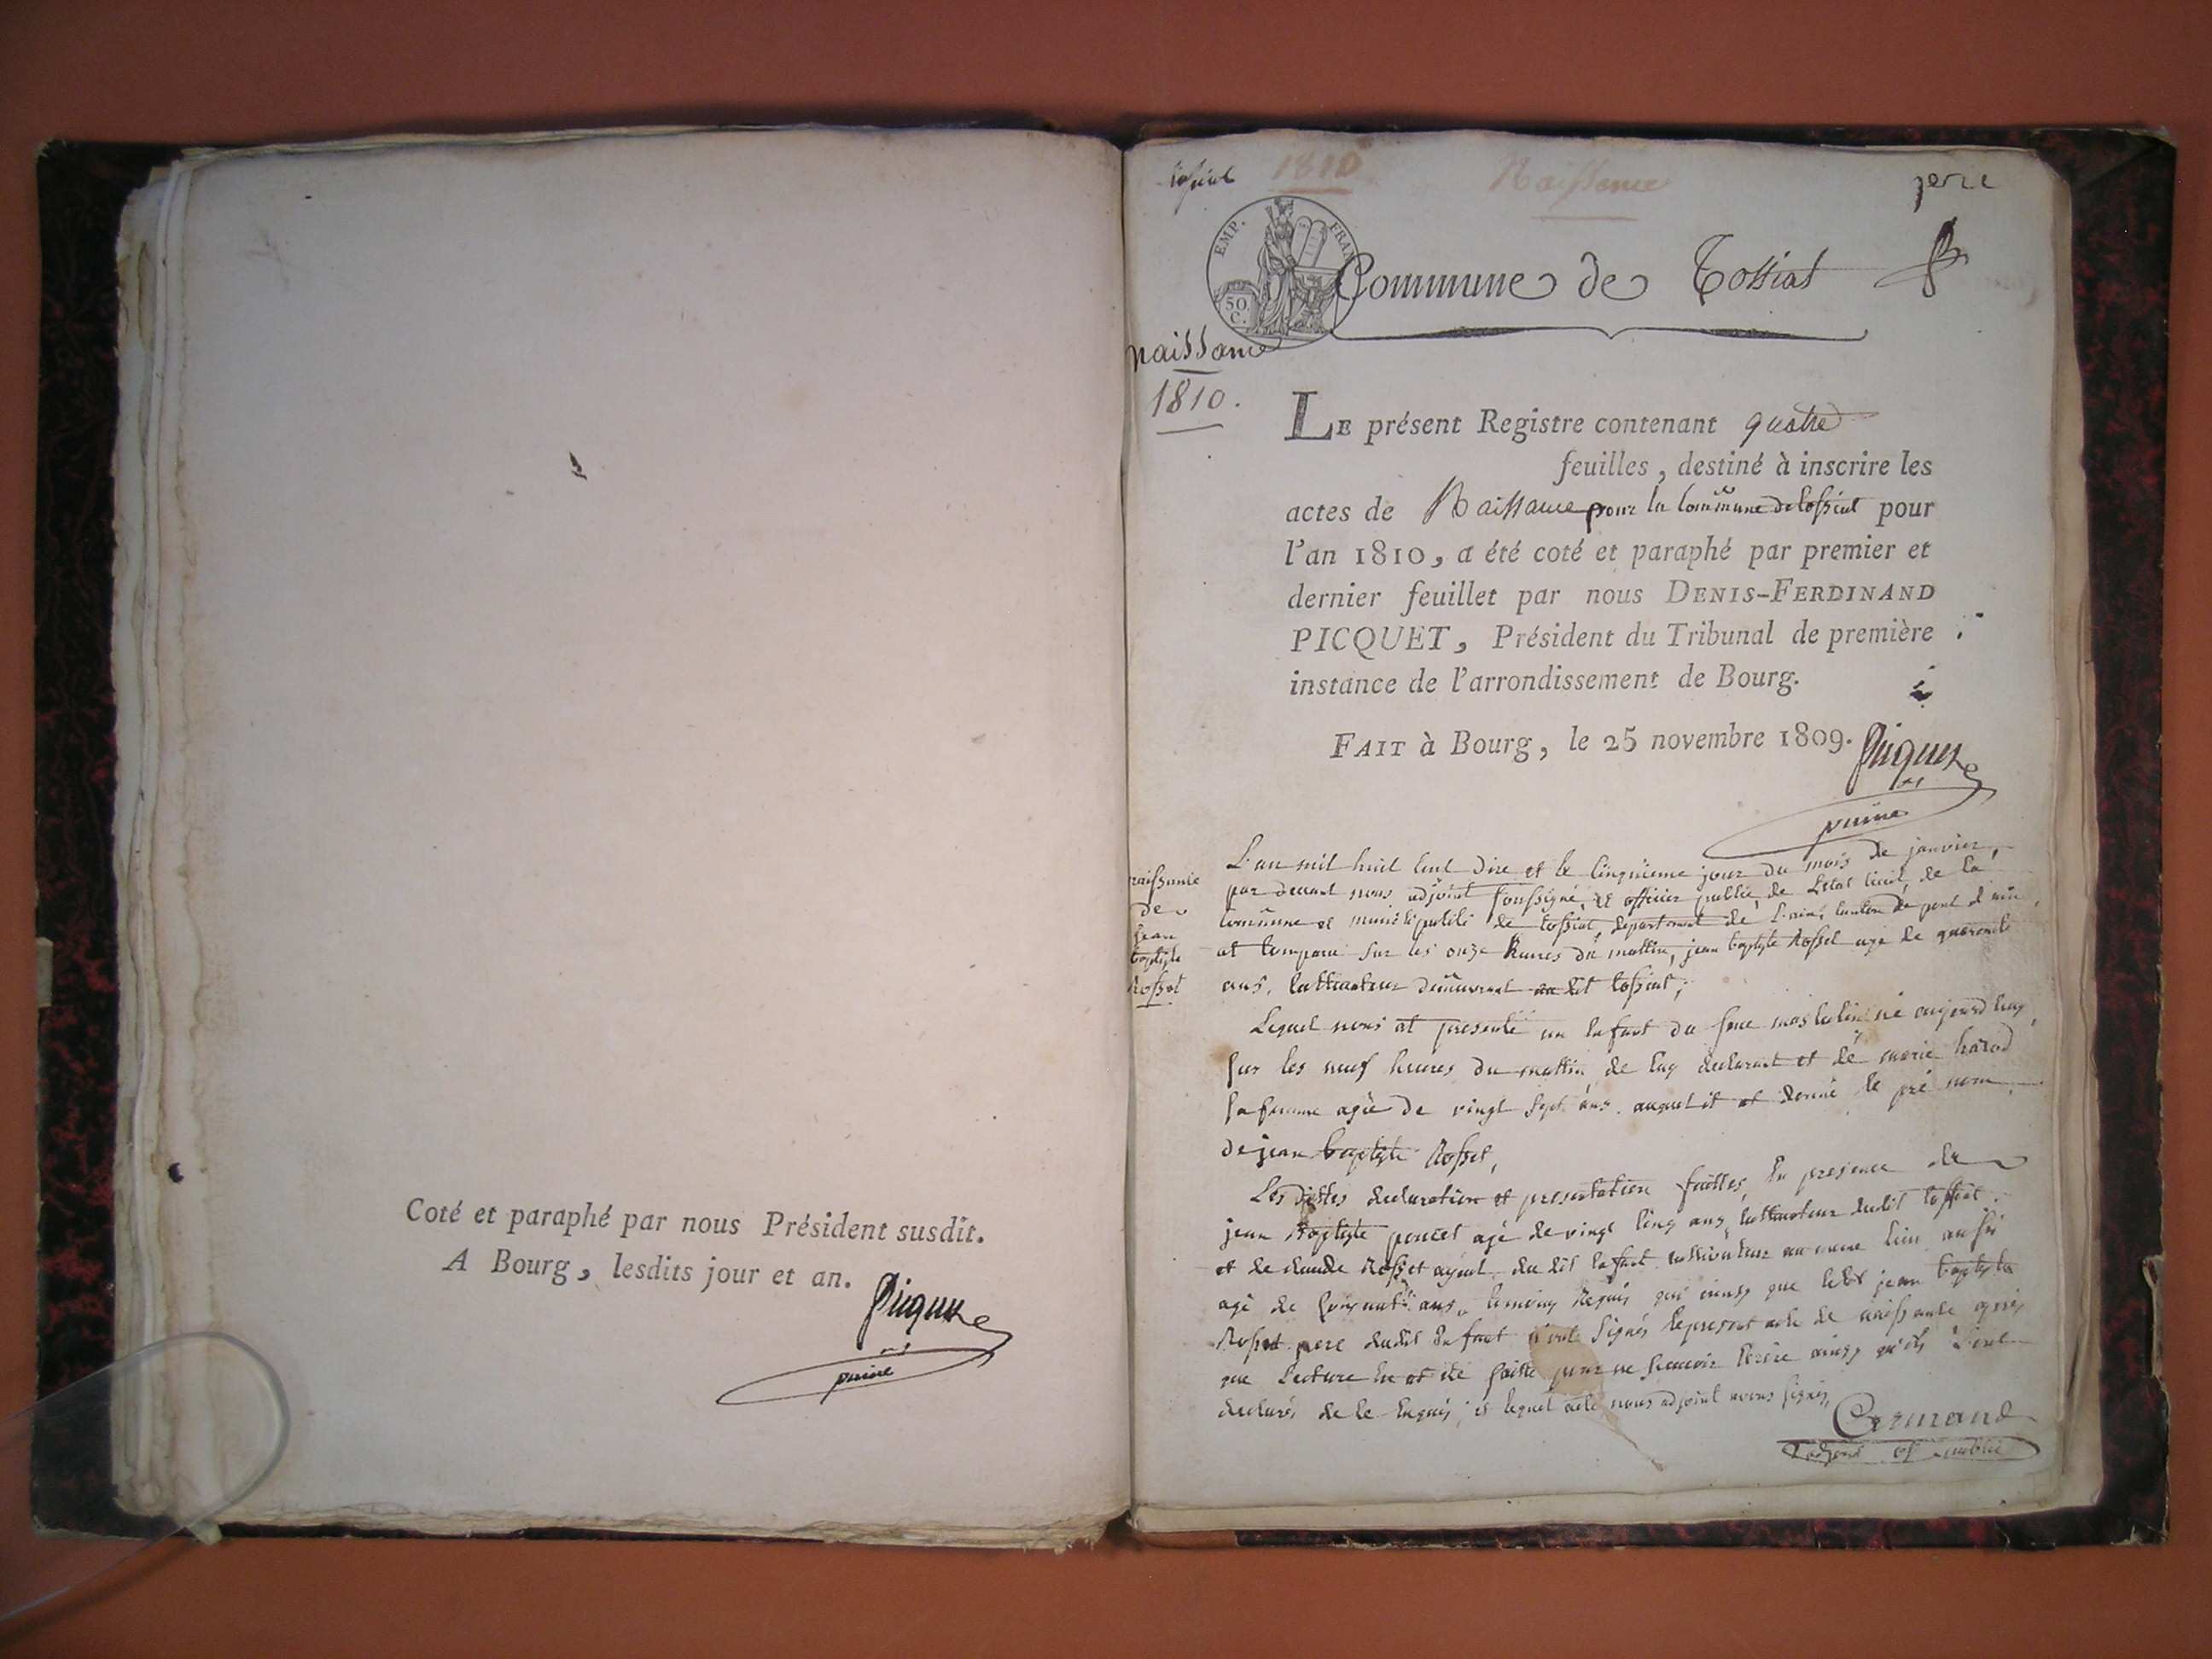 Coté et paraphé par nous Président susdit.
A Bourg, lesdits jour et an.
Picquet
tossiat 1810 Naissance
EMP. FRAN
50 C.
Commune de Tossiat
naissance
1810.
LE présent Registre contenant quatre
feuilles, destiné à inscrire les
actes de Naissance pour la Commune de tossiat pour
l'an 1810, a été coté et paraphé par premier et
dernier feuillet par nous DENIS-FERDINAND
PICQUET, Président du Tribunal de première
instance de l'arrondissement de Bourg.
FAIT à Bourg, le 25 novembre 1809.
Picquet
naissance
de
jean
baptiste
Rosset
L'an mil huit cent dixe et le cinquieme jour du mois de janvier,
par devant nous adjoint soussigné, et officier public de L'etat civil, de la
commune et municipalité de tossiat, departement de L'ain, canton de pont d'ain,
at comparu sur les onze heures du mattin, jean baptiste Rosset agé de quarente
ans, cultivateur demeurant au dit tossiat;
Lequel nous at presenté un enfant du sexe masculin né aujourd'huy
sur les neuf heures du mattin, de luy declarant et de marie
sa femme agée de vingt sept ans auquel il at donné le pré nom
de jean baptiste Rosset,
Les dittes declaration et presentation faittes, en presence de
jean Baptiste poncet agé de vingt cinq ans, cultivateur dudit tossiat
et de claude Rosset ayeul du dit enfant cultivateur au meme lieu aussi
agé de ans, temoins requis qui ainsy que ledit jean baptiste
Rosset pere dudit enfant n'ont signés le present acte de naissance apres
que Lecture en at été faitte pour ne scavoir ecrire ainsy qu'ils L'ont
declarés de ce enquis, et lequel acte nous adjoint avons signés,
adjoint of public